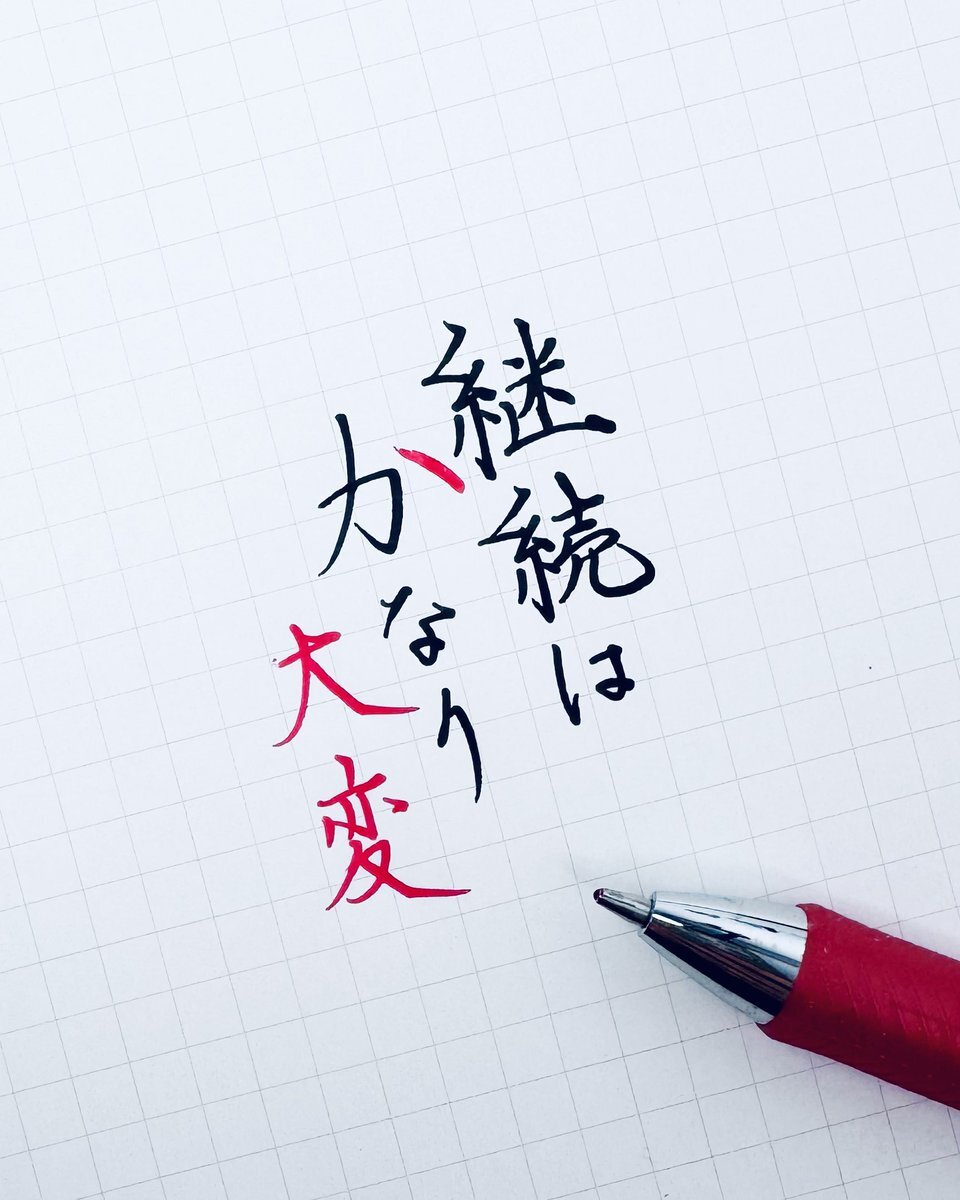 継続は
かなり
大変